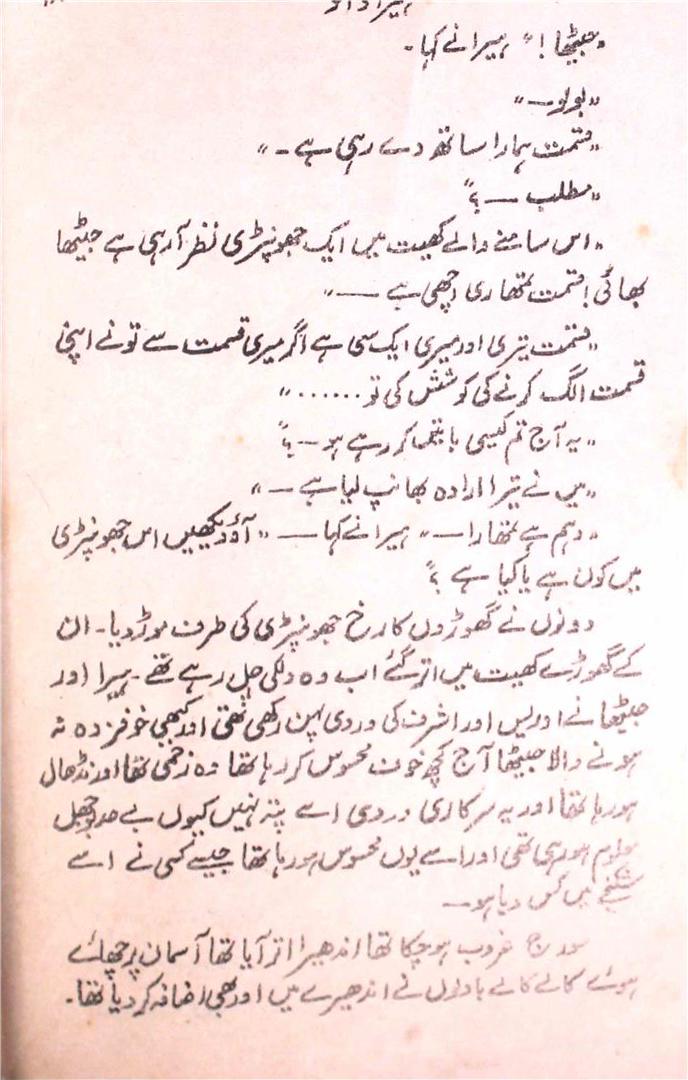 "جیٹھا!" ہیرا نے کہا۔
"بولو—"
"قسمت ہمارا ساتھ دے رہی ہے۔"
"مطلب—؟"
"اس سامنے والے کھیت میں ایک جھونپڑی نظر آ رہی ہے جیٹھا
بھائی! قسمت تمھاری اچھی ہے—"
"قسمت تیری اور میری ایک سی ہے اگر میری قسمت سے تو نے اپنی
قسمت الگ کرنے کی کوشش کی تو......"
"یہ آج تم کیسی باتیں کر رہے ہو—؟"
"میں نے تیرا ارادہ بھانپ لیا ہے—"
"وہم ہے تمھارا—" ہیرا نے کہا— "آؤ دیکھیں اس جھونپڑی
میں کون ہے یا کیا ہے؟"
دونوں نے گھوڑوں کا رخ جھونپڑی کی طرف موڑ دیا۔ ان
کے گھوڑے کھیت میں اتر گئے اب وہ دلکی چل رہے تھے۔ ہیرا اور
جیٹھا نے ادریس اور اشرف کی وردی پہن رکھی تھی اور کبھی خوفزدہ نہ
ہونے والا جیٹھا آج کچھ خوف محسوس کر رہا تھا وہ زخمی تھا اور نڈھال
ہو رہا تھا اور یہ سرکاری وردی اسے پتہ نہیں کیوں بے حد بوجھل
معلوم ہو رہی تھی اور اسے یوں محسوس ہو رہا تھا جیسے کسی نے اسے
شکنجے میں کس دیا ہو—
سورج غروب ہو چکا تھا اندھیرا اتر آیا تھا آسمان پر چھائے
ہوئے کالے کالے بادلوں نے اندھیرے میں اور بھی اضافہ کر دیا تھا۔